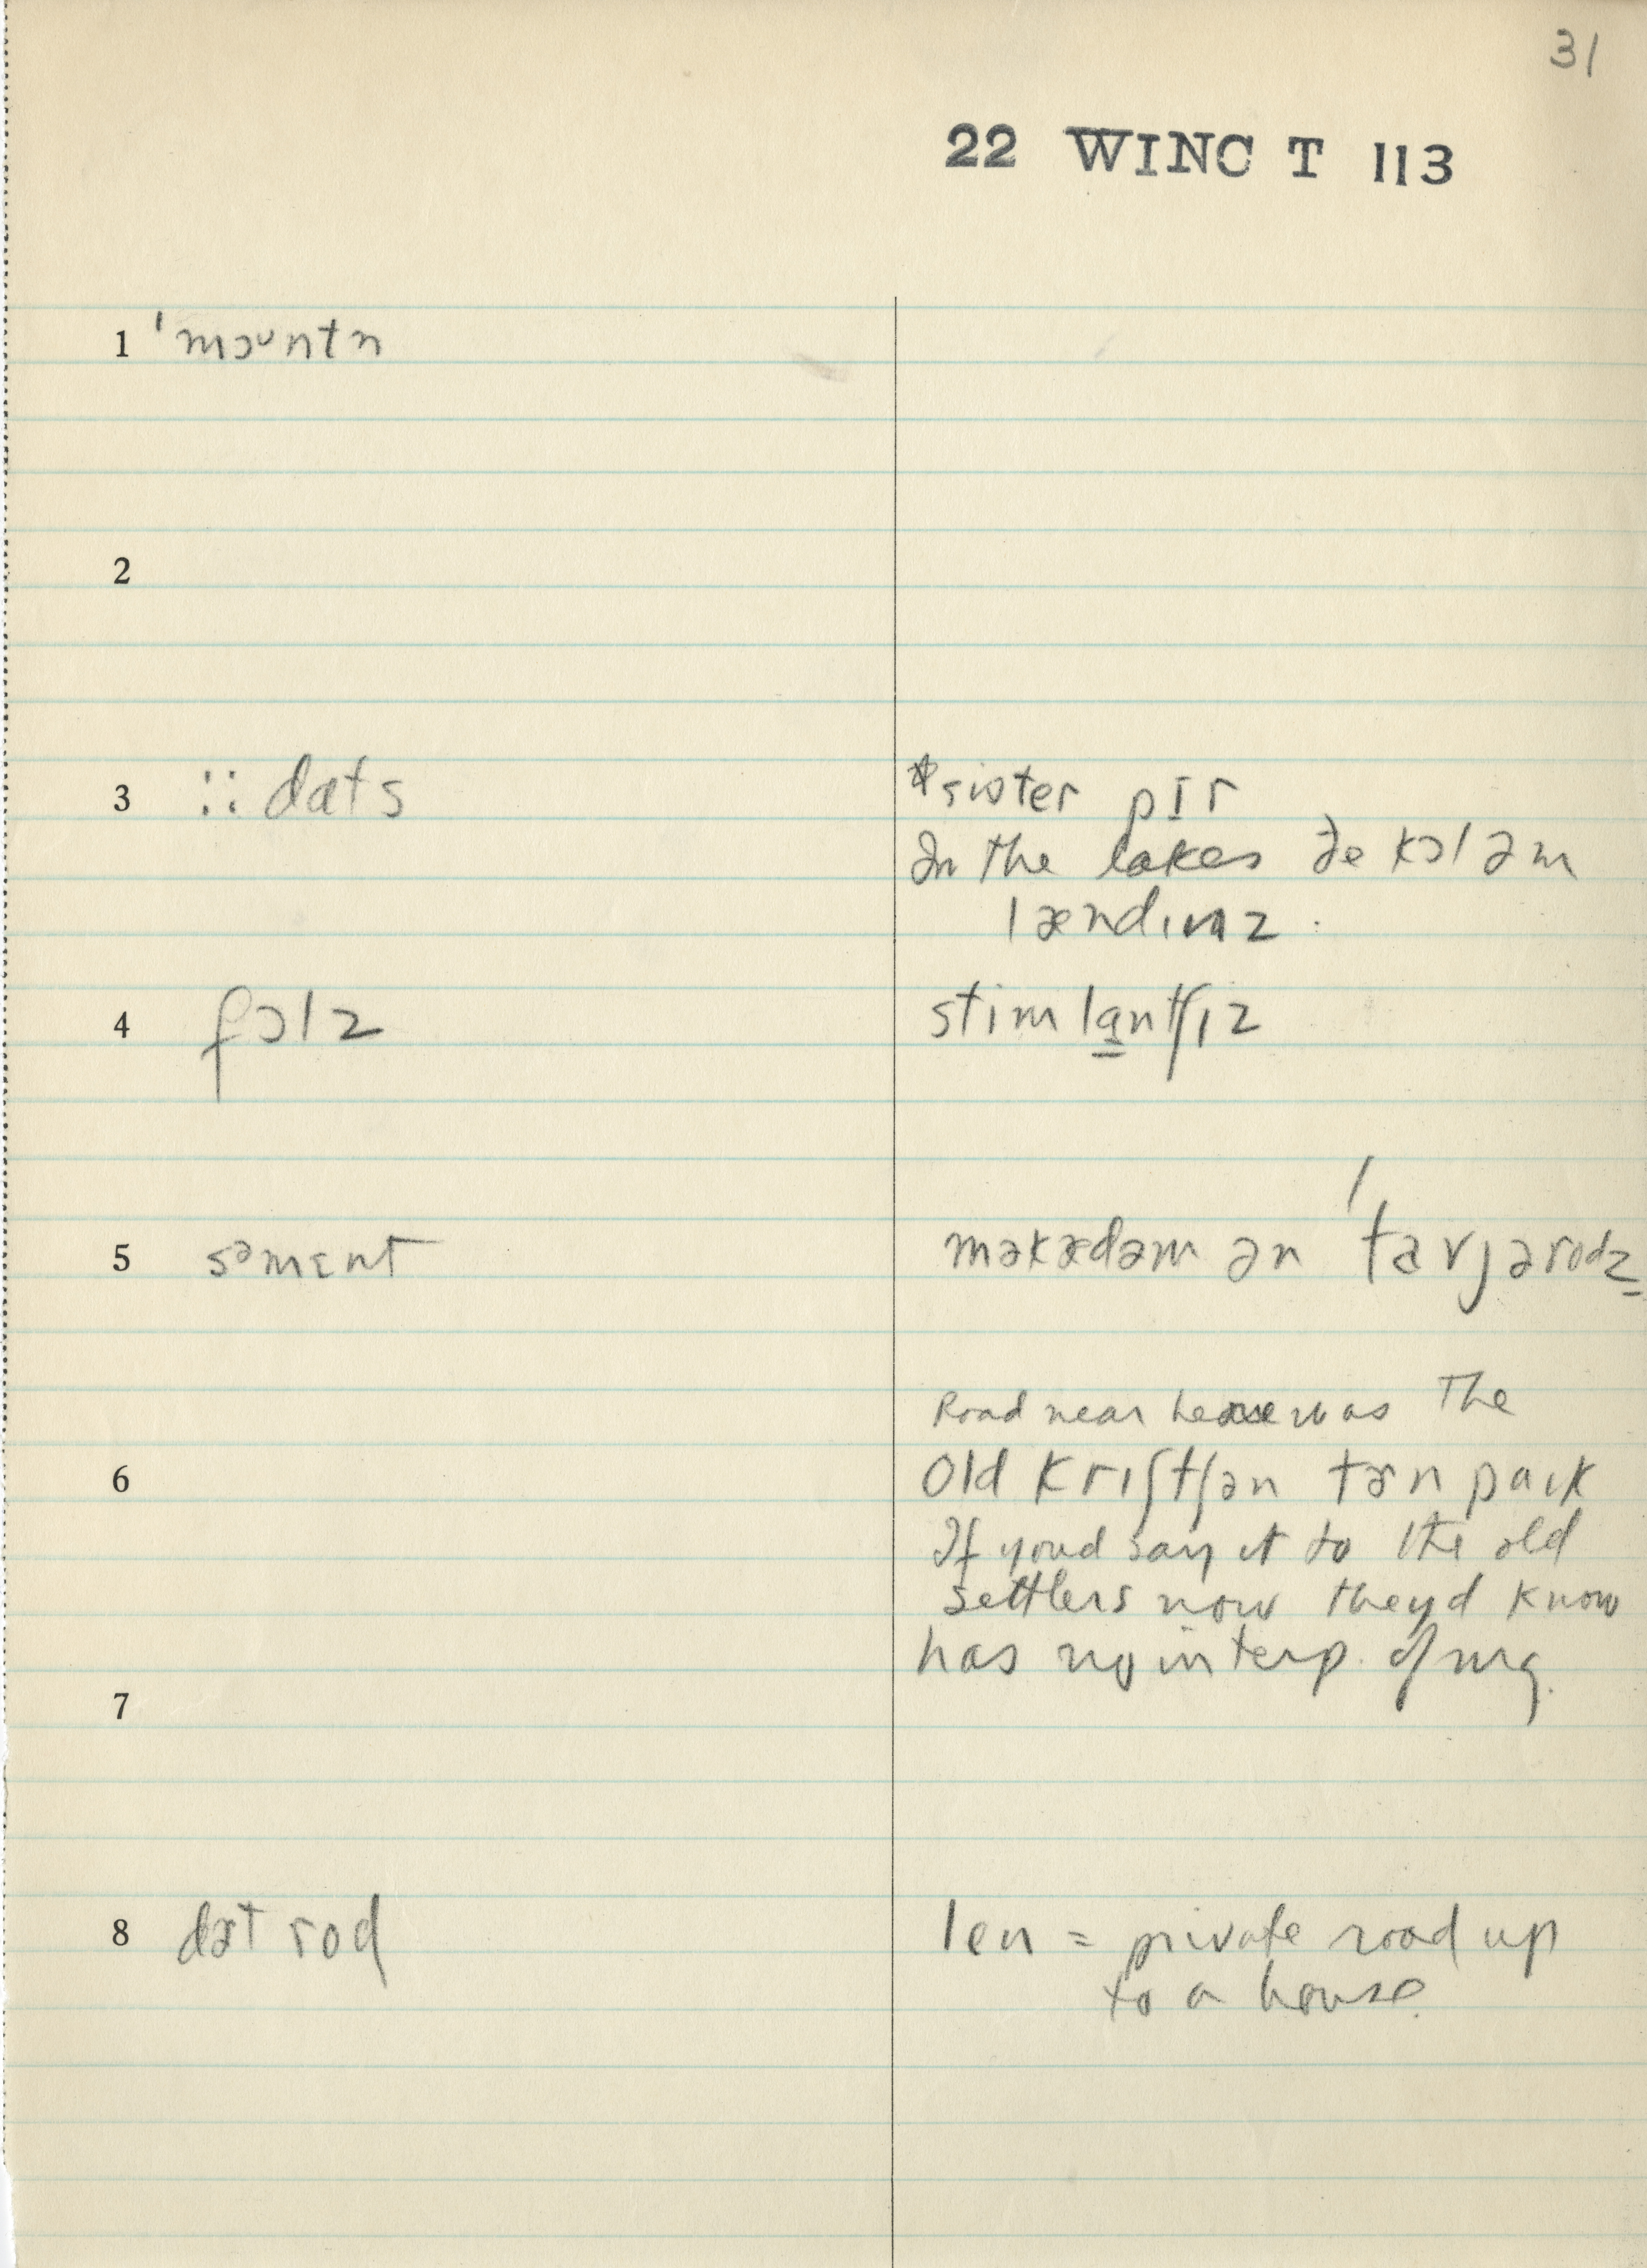 31
22 WINC T 113
1 ˈmɔᴜntn
2
3 :: dats
*sister pɪr
In the lakes ðe kɔləm
lændɪnz.
4 fɔlz
stim lantʃɪz
5 səmɛnt
məkædəm ən ˈtarvjərodz
Road near here was The
6 Old krɪʃtʃən tɚnpaɪk
If youd say it to the old
settlers now theyd know
has no interp. of mg.
7
8 dɚt rod
len = private road up
to a house.